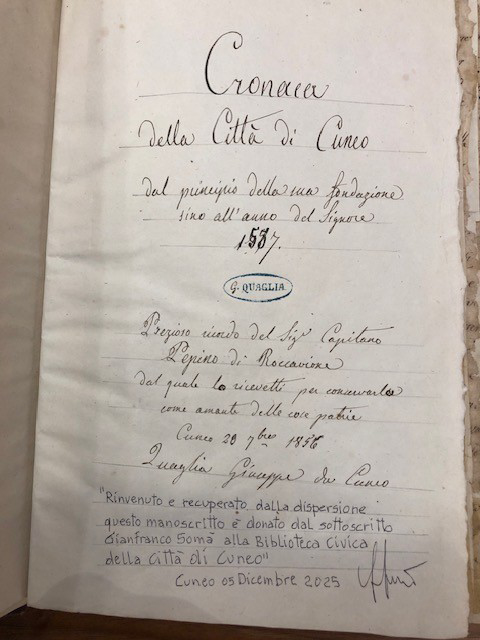 Cronaca
della Città di Cuneo
dal principio della sua fondazione
sino all'anno del Signore
1557.
G. QUAGLIA.
Prezioso ricordo del Sigr Capitano
Pepino di Roccavione
dal quale lo ricevetti per conservarlo
come amante delle cose patrie
Cuneo 20 7bre 1856
Quaglia Giuseppe da Cuneo
"Rinvenuto e recuperato dalla dispersione
questo manoscritto è donato dal sottoscritto
Gianfranco Somà alla Biblioteca Civica
della Città di Cuneo"
Cuneo 05 Dicembre 2025